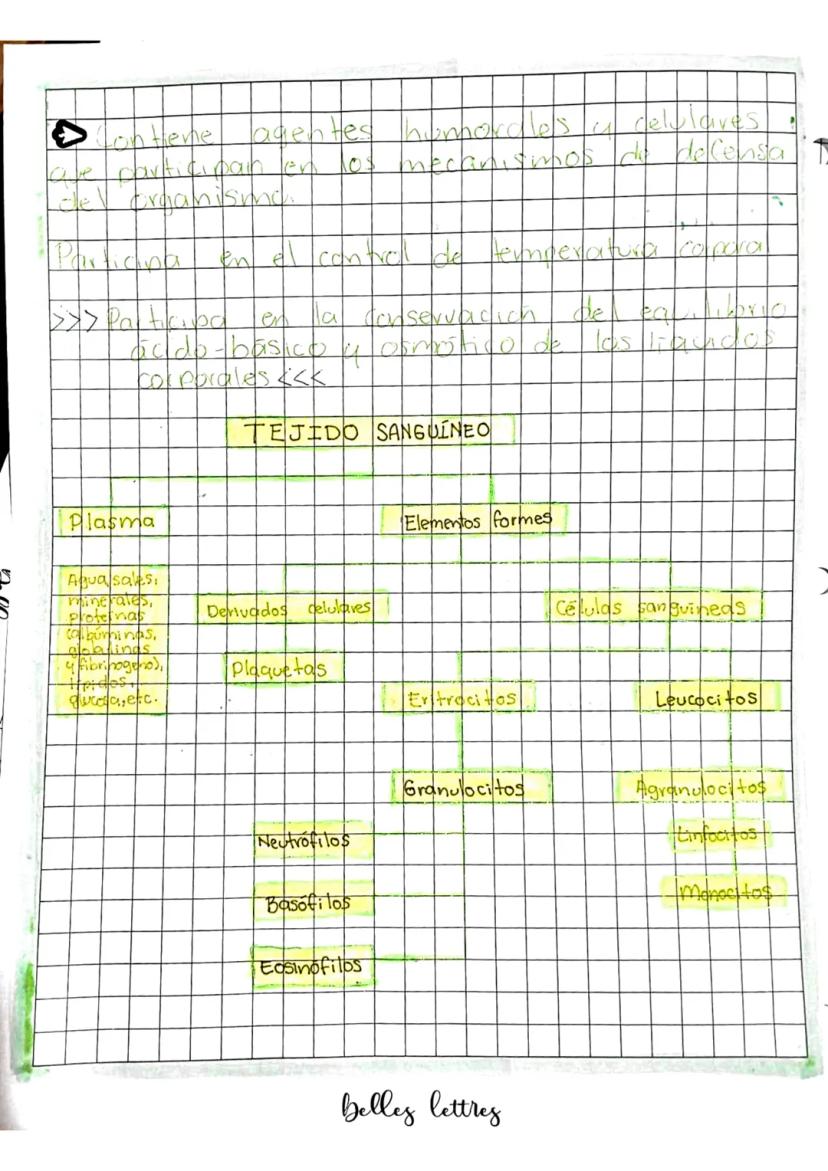 Contiene agentes humorales y celulares
que participan en los mecanismos de defensa
del organismo.
Participa en el control de temperatura corporal
>>> Participa en la conservación del equilibrio
ácido-básico y osmótico de los líquidos
corporales <<<
TEJIDO SANGUÍNEO
Plasma
Elementos formes
Agua, sales,
minerales,
proteínas
(albúminas,
globulinas
y fibrinogeno),
lípidos,
glucosa, etc.
Derivados celulares
Células sanguineas
Plaquetas
Eritrocitos
Leucocitos
Granulocitos
Agranulocitos
Neutrófilos
Linfocitos
Basófilos
Monocitos
Eosinófilos
belles lettres